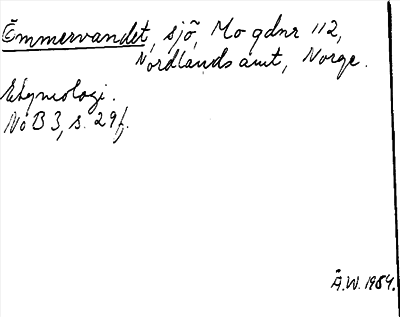 Ēmmervandet, sjö, Mo gdnr 112,
Nordlands amt, Norge.
Etymologi.
NoB 3, s. 29f.
Å.W. 1984.